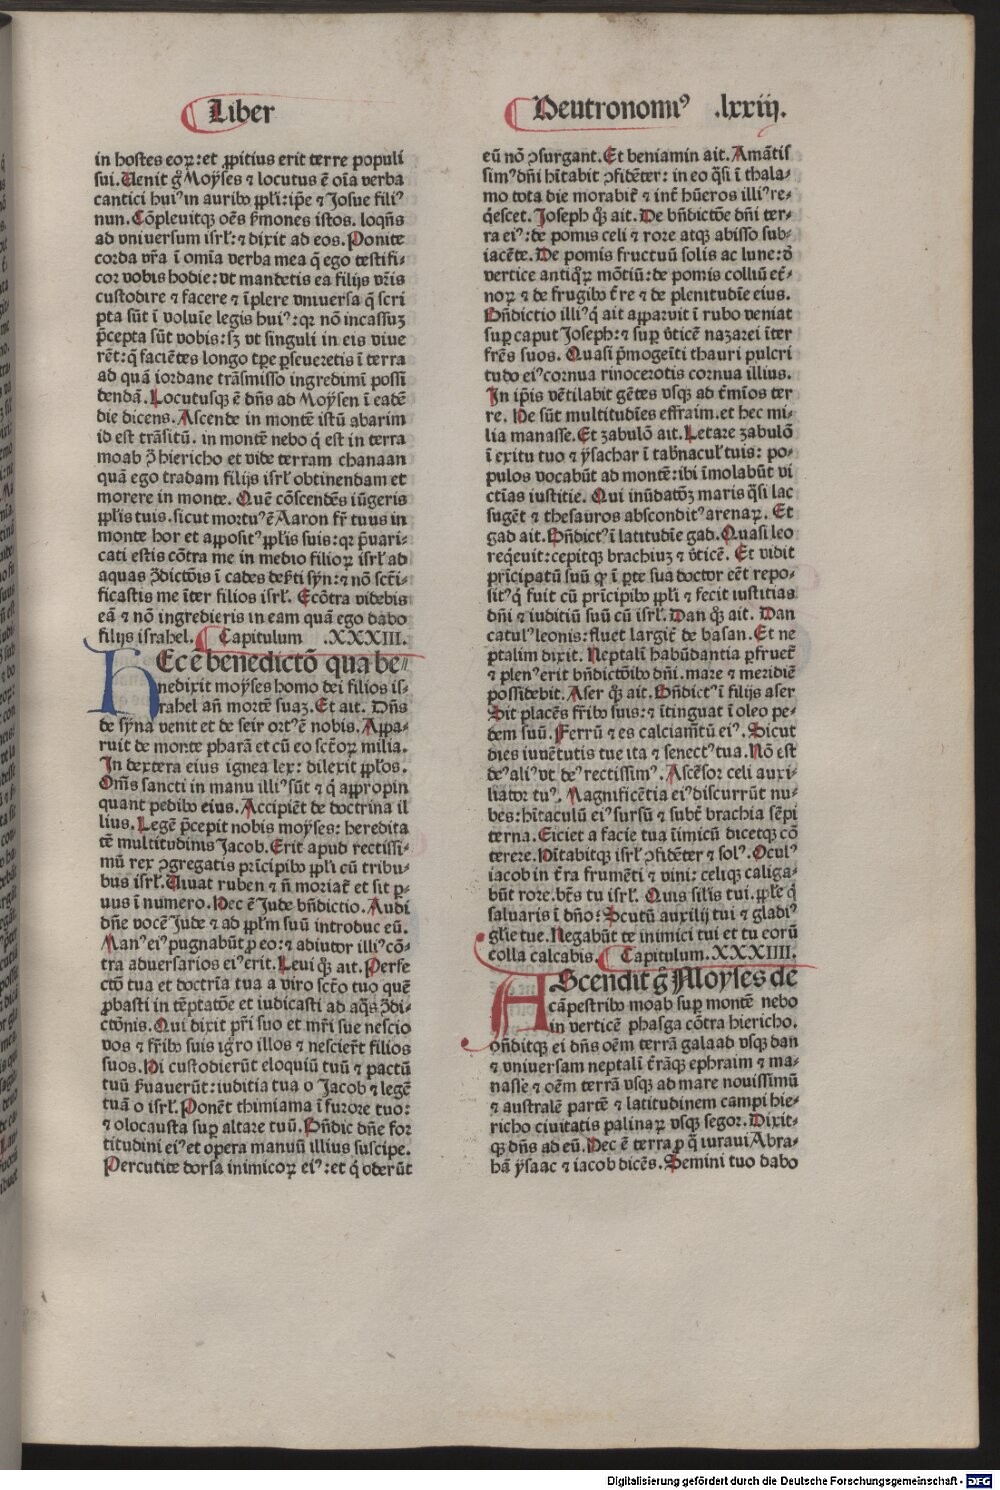 Liber
in hostes eoꝝ: et ꝓpitius erit terre populi
sui. Uenit g̃ Moyses ⁊ locutus ē oīa verba
cantici huiꝰ in auribꝰ ꝓpl̓i: ip̄e ⁊ Josue filiꝰ
nun. Cōpleuitqꝫ oēs ẜmones istos. loqn̄s
ad vniuersum isrl̓: ⁊ dixit ad eos. Ponite
corda vr̄a ī omīa verba mea q̄ ego testifi-
cor vobis hodie: vt mandetis ea filijs vr̄is
custodire ⁊ facere ⁊ īplere vniuersa q̄ scri
pta sūt ī voluīe legis huiꝰ: qr nō incassuꝫ
p̄cepta sūt vobis: sꝫ vt singuli in eis viue
rēt: q̄ faciētes longo tꝑe ꝑseueretis ī terra
ad quā iordane trāsmisso ingredimī possi
dendā. Locutusqꝫ ē dn̄s ad Moysen ī eadē
die dicens. Ascende in montē istū abarim
id est trāsitū. in montē nebo q̄ est in terra
moab ꝯ̄ hiericho et vide terram chanaan
quā ego tradam filijs isrl̓ obtinendam et
morere in monte. Quē cōscendēs iūgeris
ꝓpl̓is tuis. sicut mortuꝰ ē Aaron fr̄ tuus in
monte hor et appositꝰ ꝓpl̓is suis: qr p̄uari-
cati estis cōtra me in medio filioꝝ isrl̓ ad
aquas ꝯ̄dictōis ī cades deẜti syn: ⁊ nō sctī-
ficastis me īter filios isrl̓. Ecōtra videbis
eā ⁊ nō ingredieris in eam quā ego dabo
filijs israhel. Capitulum .XXXIII.
HEc ē benedictō qua be-
nedixit moyses homo dei filios is-
rahel an̄ mortē suaꝫ. Et ait. Dn̄s
de syna venit et de seir ortꝰ ē nobis. Appa-
ruit de monte pharā et cū eo sctōꝝ milia.
In dextera eius ignea lex: dilexit ꝓpl̓os.
Om̄s sancti in manu illiꝰ sūt ⁊ q̄ appropin
quant pedibꝰ eius. Accipiēt de doctrina il
lius. Legē p̄cepit nobis moyses: heredita
tē multitudinis Jacob. Erit apud rectissi-
mū rex ꝯgregatis prīcipibꝰ ꝓpl̓i cū tribu-
bus isrl̓. Uiuat ruben ⁊ n̄ moriat̄ et sit ꝑ-
uus ī numero. Hec ē Jude bn̄dictio. Audi
dn̄e vocē Jude ⁊ ad ꝓpl̓m suū introduc eū.
Manꝰ eiꝰ pugnabūt ꝓ eo: ⁊ adiutor illiꝰ cō-
tra aduersarios eiꝰ erit. Leui q̄ꝫ ait. Perfe
ctō tua et doctrīa tua a viro sctō tuo quē
ꝓbasti in tēptatōe et iudicasti ad aq̄s ꝯ̄di-
ctōnis. Qui dixit pr̄i suo et mr̄i sue nescio
vos ⁊ fr̄ibꝰ suis igr̄o illos ⁊ nescier̄t filios
suos. Hi custodierūt eloquiū tuū ⁊ pactū
tuū ẜuauerūt: iuditia tua o Jacob ⁊ legē
tuā o isrl̓. Ponēt thimiama ī furore tuo:
⁊ olocausta suꝑ altare tuū. Bn̄dic dn̄e for
titudini eiꝰ et opera manuū illius suscipe.
Percutite dorsa inimicoꝝ eiꝰ: et q̄ oderūt
Deutronomiꝰ .lxxiij.
eū nō ꝯsurgant. Et beniamin ait. Amātis
simꝰ dn̄i hītabit ꝯfidēter: in eo q̄si ī thala-
mo tota die morabit̄ ⁊ int̄ hūeros illiꝰ re-
q̇escet. Joseph q̄ꝫ ait. De bn̄dictōe dn̄i ter-
ra eiꝰ: de pomis celi ⁊ rore atqꝫ abisso sub-
iacēte. De pomis fructuū solis ac lune: d̄
vertice antiq̄ꝝ mōtiū: de pomis colliū et̄-
noꝝ ⁊ de frugibꝰ t̄re ⁊ de plenitudīe eius.
Bn̄dictio illiꝰ q̄ ait apparuit ī rubo veniat
suꝑ caput Joseph: ⁊ suꝑ v̄ticē nazarei īter
frēs suos. Quasi p̄mogeīti thauri pulcri
tudo eiꝰ cornua rinocerotis cornua illius.
In ip̄is vētilabit gētes vsqꝫ ad t̄mīos ter
re. He sūt multitudīes effraim. et hec mi-
lia manasse. Et zabulō ait. Letare zabulō
ī exitu tuo ⁊ ysachar ī tab̄nacul̓ tuis: po-
pulos vocabūt ad montē: ibi īmolabūt vi
ctīas iustitie. Qui inūdatōꝫ maris q̄si lac
sugēt ⁊ thesauros absconditꝰ arenaꝝ. Et
gad ait. Bn̄dictꝰ ī latitudīe gad. Quasi leo
req̇euit: cepitqꝫ brachiuꝫ ⁊ v̄ticē. Et vidit
prīcipatū suū qr ī ꝑte sua doctor eēt repo-
sitꝰ q̄ fuit cū prīcipibꝰ ꝓpl̓i ⁊ fecit iustitias
dn̄i ⁊ iuditiū suū cū isrl̓. Dan q̄ꝫ ait. Dan
catulꝰ leonis: fluet largit̄ de basan. Et ne
ptalim dixit. Neptalī habūdantia ꝑfruet̄
⁊ plenꝰ erit bn̄dictōibꝰ dn̄i. mare ⁊ meridiē
possidebit. Aser q̄ꝫ ait. Bn̄dictꝰ ī filijs aser
Sit placēs fr̄ibꝰ suis: ⁊ ītinguat ī oleo pe-
dem suū. Ferrū ⁊ es calciam̄tū eiꝰ. Sicut
dies iuuētutis tue ita ⁊ senectꝰ tua. Nō est
deꝰ aliꝰ vt deꝰ rectissimꝰ. Ascēsor celi auxi-
liator tuꝰ. Magnificētia eiꝰ discurrūt nu-
bes: hītaculū eiꝰ sursū ⁊ subt̄ brachia sēpi
terna. Eiciet a facie tua īimicū dicetqꝫ cō
terere. Hītabitqꝫ isrl̓ ꝯfidēter ⁊ solꝰ. Oculꝰ
iacob in t̄ra frumēti ⁊ vini: celiqꝫ caliga-
būt rore. bt̄s tu isrl̓. Quis sil̓is tui. ꝓpl̓e q̄
saluaris ī dn̄o: Scutū auxilij tui ⁊ gladiꝰ
gl̓ie tue. Negabūt te inimici tui et tu eorū
colla calcabis. Capitulum. XXXIIII.
AScendit g̃ Moyses de
cāpestribꝰ moab suꝑ montē nebo
in verticē phasga cōtra hiericho.
on̄ditqꝫ ei dn̄s oēm terrā galaad vsqꝫ dan
⁊ vniuersam neptalī t̄rāqꝫ ephraim ⁊ ma-
nasse ⁊ oēm terrā vsqꝫ ad mare nouissimū
⁊ australē partē ⁊ latitudinem campi hie-
richo ciuitatis palmaꝝ vsqꝫ segor. Dixit-
qꝫ dn̄s ad eū. Hec ē terra ꝓ q̄ iuraui Abra-
hā ysaac ⁊ iacob dicēs. Semini tuo dabo
Digitalisierung gefördert durch die Deutsche Forschungsgemeinschaft - DFG